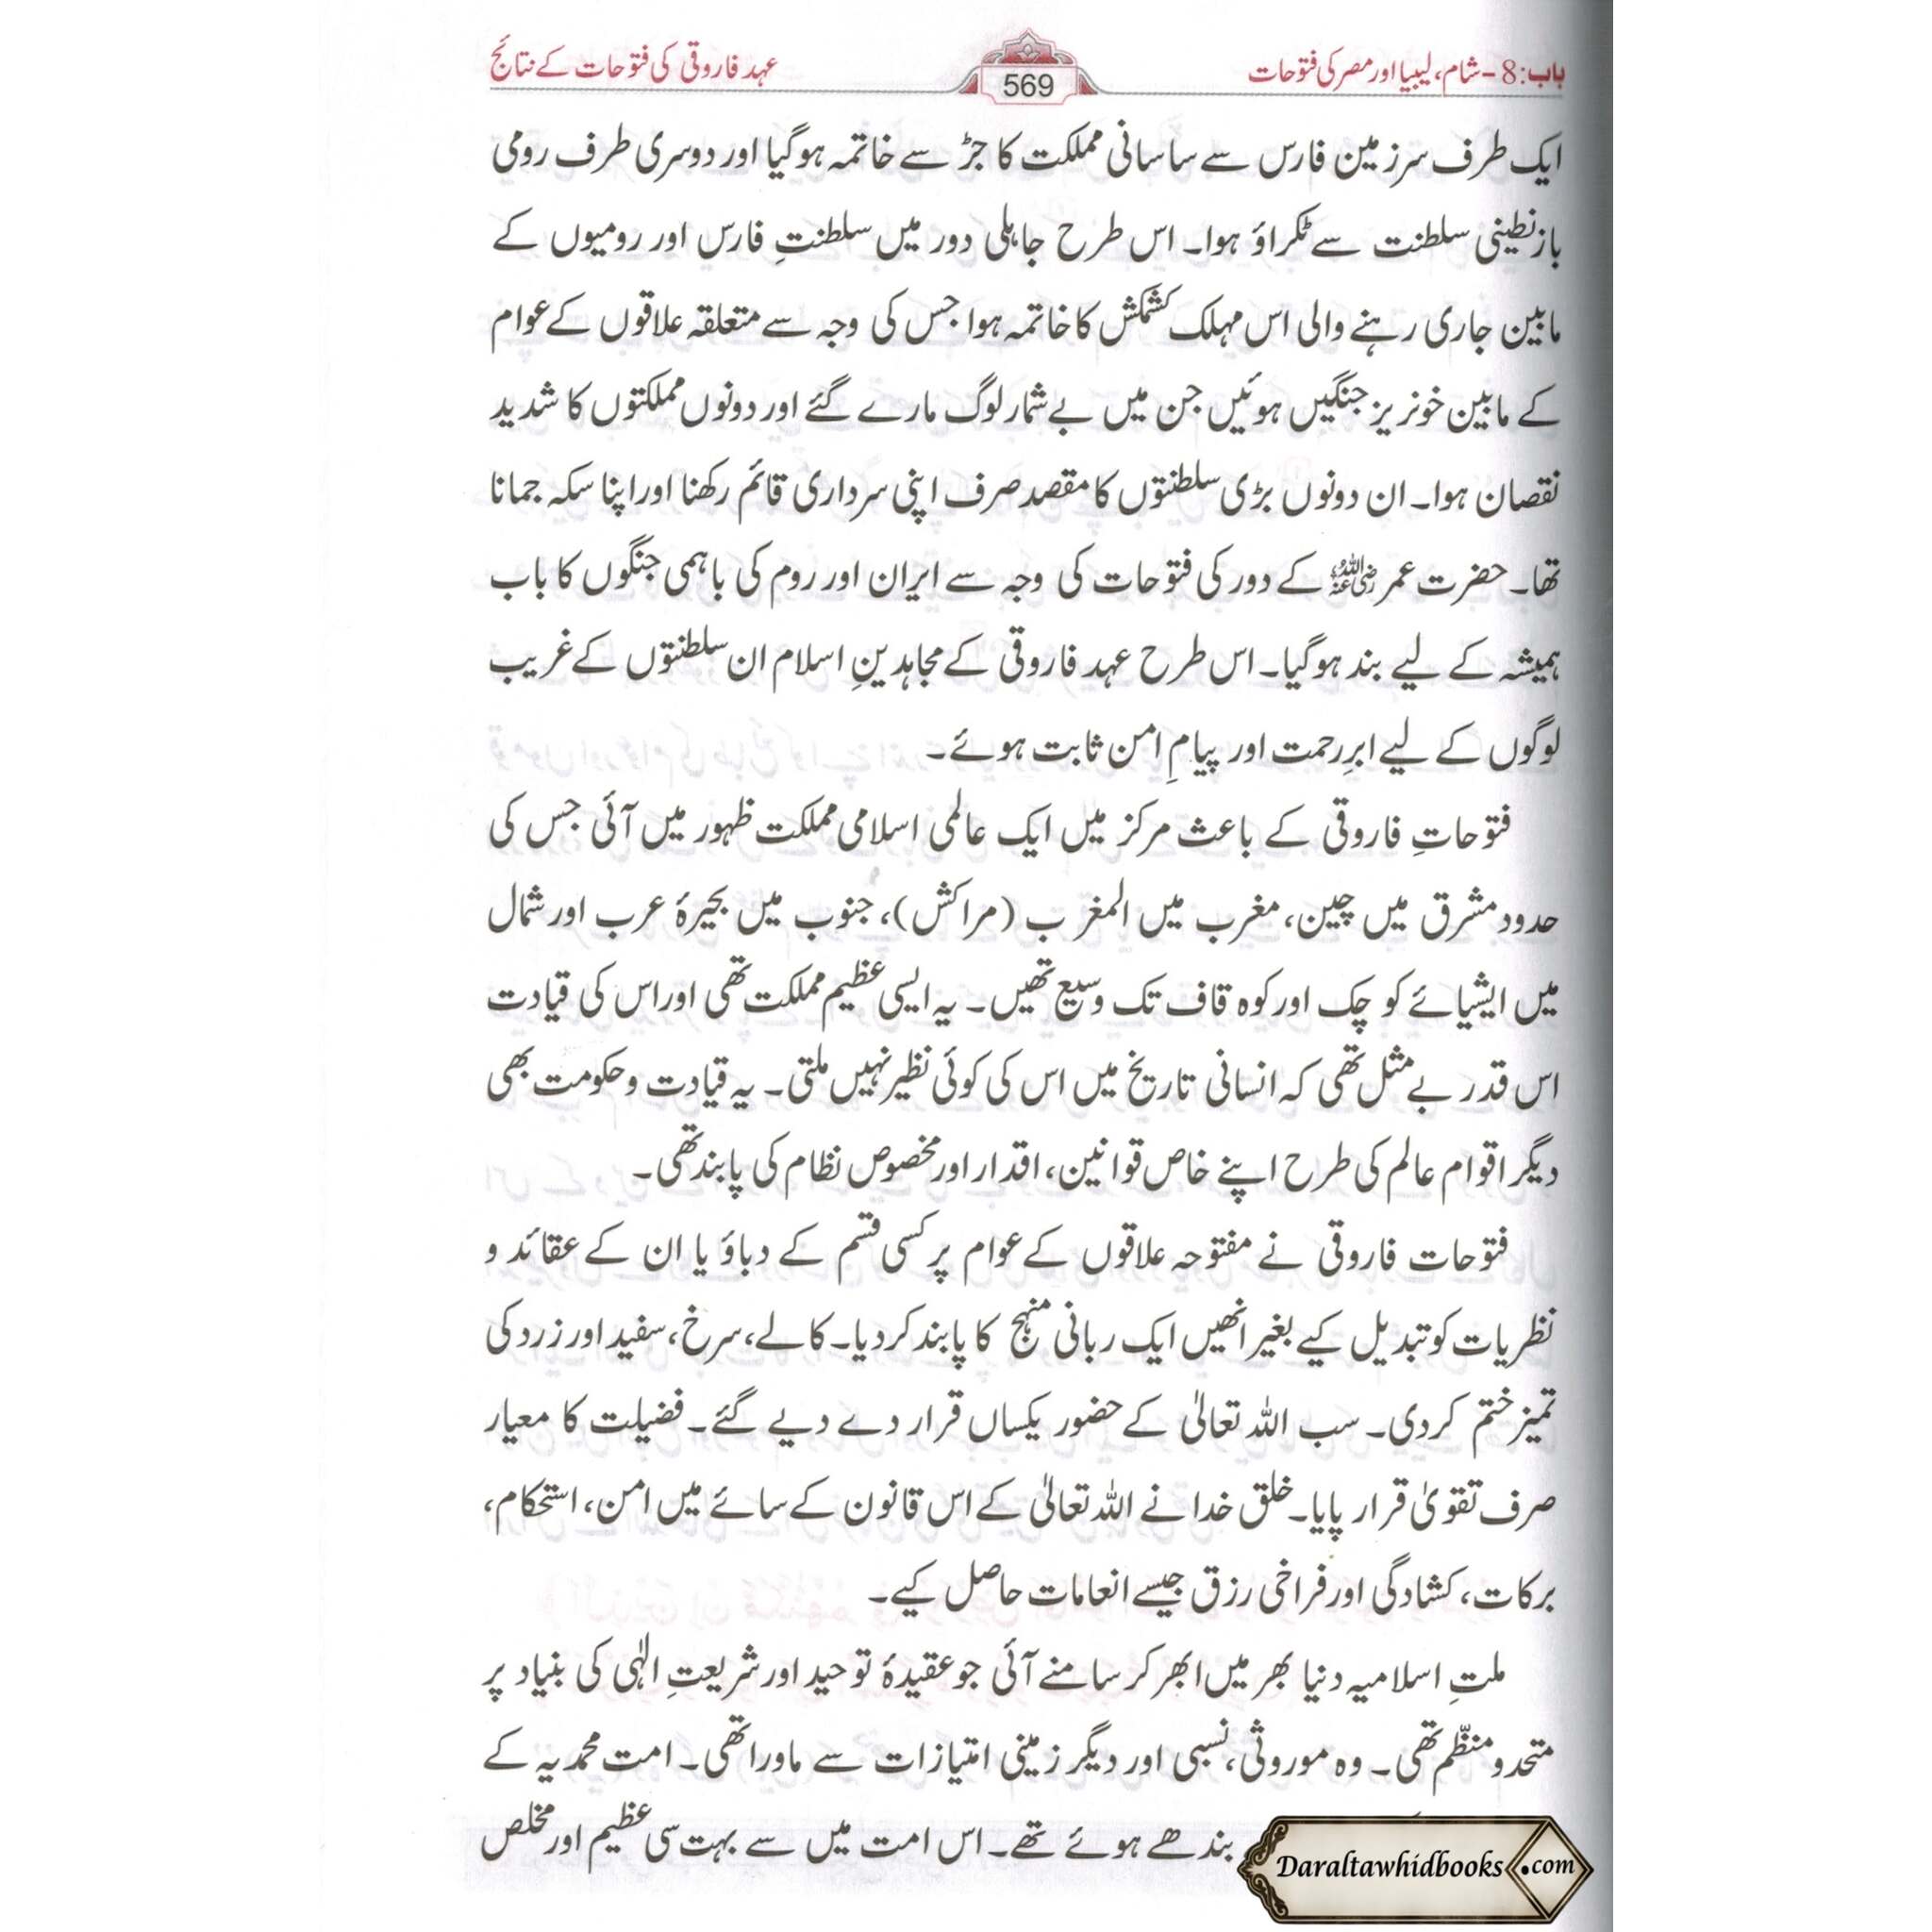 باب: 8 - شام، لیبیا اور مصر کی فتوحات
569
عہد فاروقی کی فتوحات کے نتائج
ایک طرف سرزمین فارس سے ساسانی مملکت کا جڑ سے خاتمہ ہوگیا اور دوسری طرف رومی
بازنطینی سلطنت سے ٹکراؤ ہوا۔ اس طرح جاہلی دور میں سلطنتِ فارس اور رومیوں کے
مابین جاری رہنے والی اس مہلک کشمکش کا خاتمہ ہوا جس کی وجہ سے متعلقہ علاقوں کے عوام
کے مابین خونریز جنگیں ہوئیں جن میں بے شمار لوگ مارے گئے اور دونوں مملکتوں کا شدید
نقصان ہوا۔ ان دونوں بڑی سلطنتوں کا مقصد صرف اپنی سرداری قائم رکھنا اور اپنا سکہ جمانا
تھا۔ حضرت عمر رضی اللہ عنہ کے دور کی فتوحات کی وجہ سے ایران اور روم کی باہمی جنگوں کا باب
ہمیشہ کے لیے بند ہوگیا۔ اس طرح عہد فاروقی کے مجاہدینِ اسلام ان سلطنتوں کے غریب
لوگوں کے لیے ابرِ رحمت اور پیامِ امن ثابت ہوئے۔
فتوحاتِ فاروقی کے باعث مرکز میں ایک عالمی اسلامی مملکت ظہور میں آئی جس کی
حدود مشرق میں چین، مغرب میں المغرب (مراکش)، جنوب میں بحیرۂ عرب اور شمال
میں ایشیائے کو چک اور کوہ قاف تک وسیع تھیں۔ یہ ایسی عظیم مملکت تھی اور اس کی قیادت
اس قدر بے مثل تھی کہ انسانی تاریخ میں اس کی کوئی نظیر نہیں ملتی۔ یہ قیادت و حکومت بھی
دیگر اقوام عالم کی طرح اپنے خاص قوانین، اقدار اور مخصوص نظام کی پابند تھی۔
فتوحات فاروقی نے مفتوحہ علاقوں کے عوام پر کسی قسم کے دباؤ یا ان کے عقائد و
نظریات کو تبدیل کیے بغیر انھیں ایک ربانی منہج کا پابند کردیا۔ کالے، سرخ، سفید اور زرد کی
تمیز ختم کردی۔ سب اللہ تعالیٰ کے حضور یکساں قرار دے دیے گئے۔ فضیلت کا معیار
صرف تقویٰ قرار پایا۔ خلق خدا نے اللہ تعالیٰ کے اس قانون کے سائے میں امن، استحکام،
برکات، کشادگی اور فراخی رزق جیسے انعامات حاصل کیے۔
ملتِ اسلامیہ دنیا بھر میں ابھر کر سامنے آئی جو عقیدۂ توحید اور شریعتِ الٰہی کی بنیاد پر
متحد و منظّم تھی۔ وہ موروثی، نسبی اور دیگر زمینی امتیازات سے ماورا تھی۔ امت محمدیہ کے
بندھے ہوئے تھے۔ اس امت میں سے بہت سی عظیم اور مخلص
Daraltawhidbooks.com